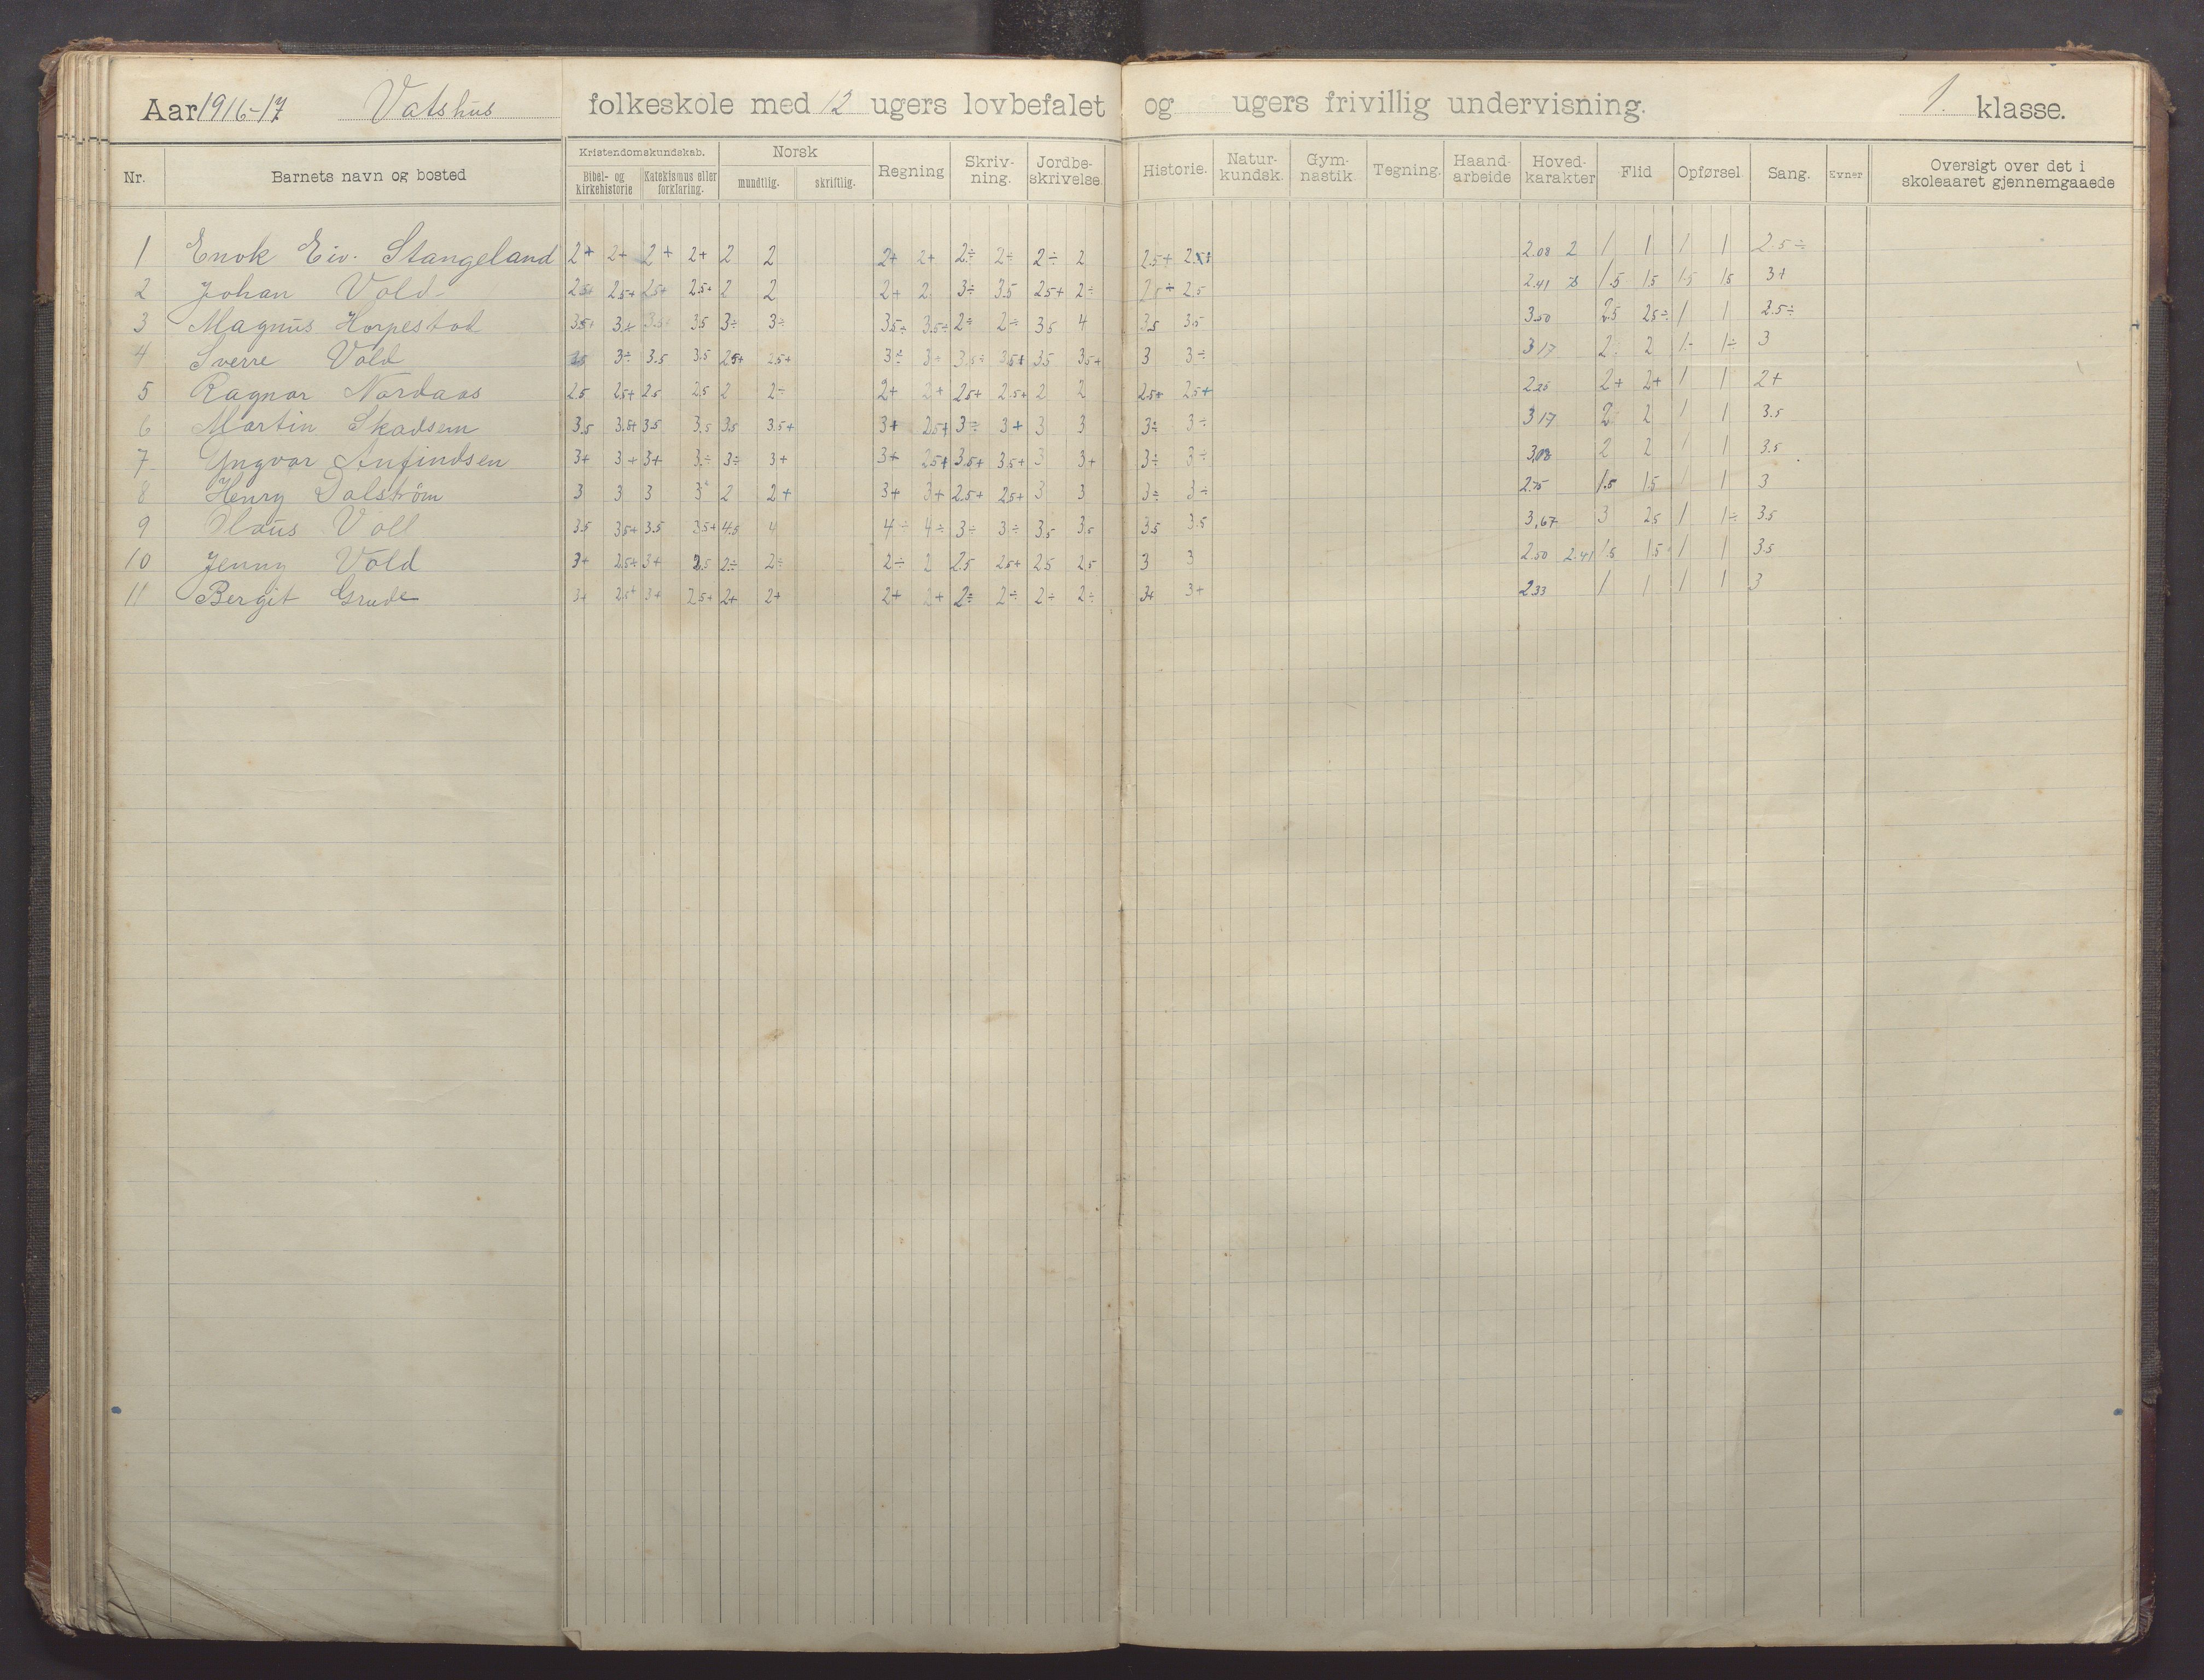 Aar 1916-17 Vatshus folkeskole med 12 ugers lovbefalet og ugers frivillig undervisning. 1. klasse.
Nr. Barnets navn og bosted Kristendomskundskab. Bibel- og kirkehistorie Katekismus eller forklaring. Norsk mundtlig. skriftlig. Regning Skriv-ning. Jordbe-skrivelse. Historie. Natur-kundsk. Gym-nastik Tegning. Haand-arbeide Hoved-karakter Flid Opførsel Sang. Evner Oversigt over det i skoleaaret gjennemgaaede
1 Enok Eiv. Stangeland 2+ 2+ 2+ 2+ 2 2 2+ 2+ 2÷ 2÷ 2÷ 2 2.5+ 2.08 2 1 1 1 1 2.5÷
2 Johan Vold 2.5+ 2.5+ 2.5+ 2.5+ 2 2 2+ 2 3÷ 3.5 2.5+ 2÷ 2.5÷ 2.5 2.41 1.5 1.5 1.5 1.5 3+
3 Magnus Horpestad 3.5+ 3+ 3.5+ 3.5 3÷ 3÷ 3.5÷ 3.5÷ 2÷ 2÷ 3.5 4 3.5 3.5 3.50 2.5 2.5÷ 1 1 2.5÷
4 Sverre Vold 3.5 3÷ 3.5 3.5 2.5+ 2.5+ 3÷ 3÷ 3.5÷ 3.5+ 3.5 3.5+ 3 3÷ 3.17 2 2 1÷ 1÷ 3
5 Ragnar Nordaas 2.5 2.5+ 2.5 2.5 2 2÷ 2+ 2+ 2.5+ 2.5+ 2 2 2.5+ 2.5+ 2.25 2+ 2+ 1 1 2+
6 Martin Skadsem 3.5 3.5+ 3.5 3.5 3.5 3.5+ 3+ 2.5+ 3÷ 3+ 3 3 3÷ 3÷ 3.17 2 2 1 1 3.5
7 Yngvar Anfindsen 3+ 3+ 3+ 3÷ 3÷ 3+ 3+ 2.5+ 3.5+ 3.5+ 3 3+ 3÷ 3÷ 3.08 2 2 1 1 3.5
8 Henry Dalström 3 3 3 3 2 2+ 3+ 3+ 2.5+ 2.5+ 3 3 3÷ 3÷ 2.75 1.5 1.5 1 1 3
9 Voll 3.5 3.5+ 3.5 3.5+ 4.5 4 4÷ 4÷ 3÷ 3÷ 3.5 3.5 3.5 3.5 3.67 3 2.5 1 1÷ 3.5
10 Jenny Vold 3+ 2.5+ 3+ 2.5 2÷ 2÷ 2÷ 2 2.5 2.5+ 2.5 2.5 3 3 2.50 2.41 1.5 1.5 1 1 3.5
11 Bergit Grude 3+ 2.5+ 3+ 2.5+ 2+ 2+ 2+ 2+ 2÷ 2÷ 2÷ 2÷ 3+ 3+ 2.33 1 1 1 1 3